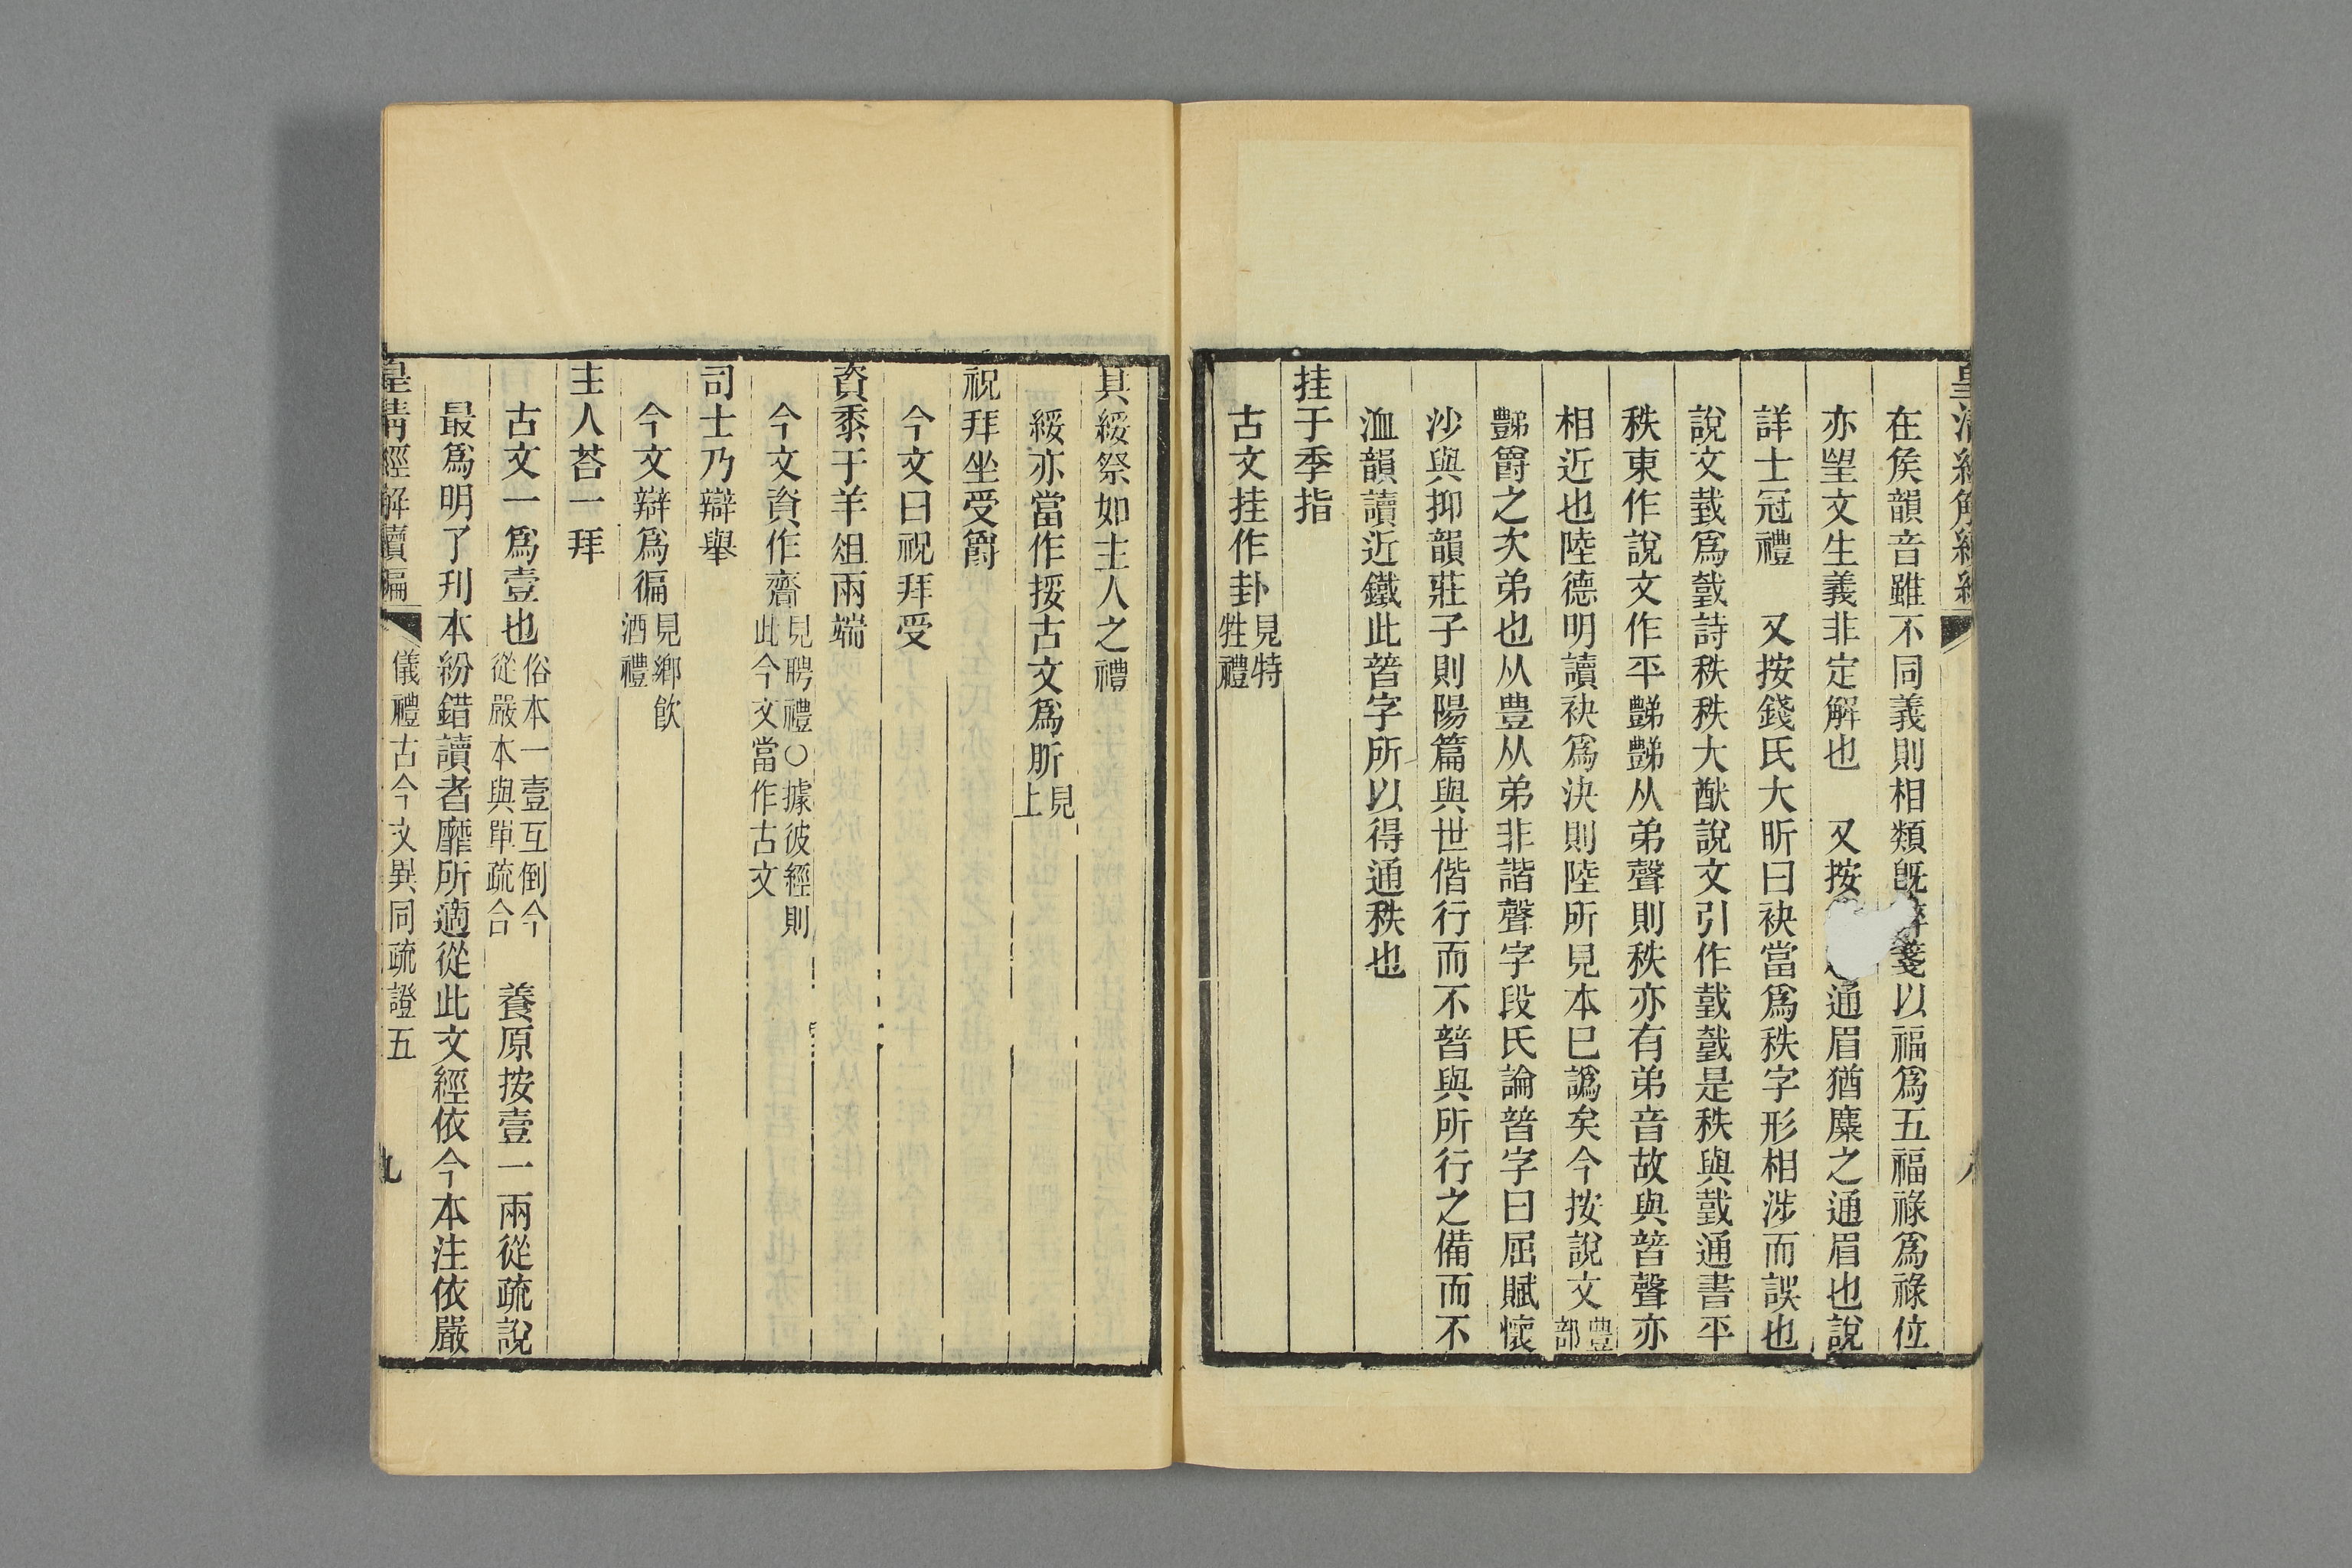 在矦韻音雖不同義則相類旣醉箋以福爲五福祿爲祿位
亦朢文生義非定解也　又按通眉猶麋之通眉也說
詳士冠禮　又按錢氏大昕曰袂當爲秩字形相涉而誤也
說文䵄爲䵄詩秩秩大猷說文引作䵄䵄是秩與䵄通書平
秩東作說文作平豑豑从弟聲則秩亦有弟音故與暜聲亦
相近也陸德明讀袂爲決則陸所見本巳譌矣今按說文豊部
豑爵之次弟也从豊从弟非諧聲字段氏論暜字曰屈賦懷
沙與抑韻莊子則陽篇與世偕行而不暜與所行之備而不
洫韻讀近鐵此暜字所以得通秩也
挂于季指
古文挂作卦見特牲禮
其綏祭如主人之禮
綏亦當作挼古文爲𣃔見上
祝拜坐受爵
今文曰祝拜受
資黍于羊俎兩端
今文資作齋見聘禮○據彼經則此今文當作古文
司士乃辯舉
今文辯爲徧見鄉飮酒禮
主人荅一拜
古文一爲壹也俗本一壹互倒今從嚴本與單疏合　養原按壹一兩從疏說
最爲明了刋本紛錯讀者靡所適從此文經依今本注依嚴
皇清經解續編　儀禮古今文異同疏證五　九